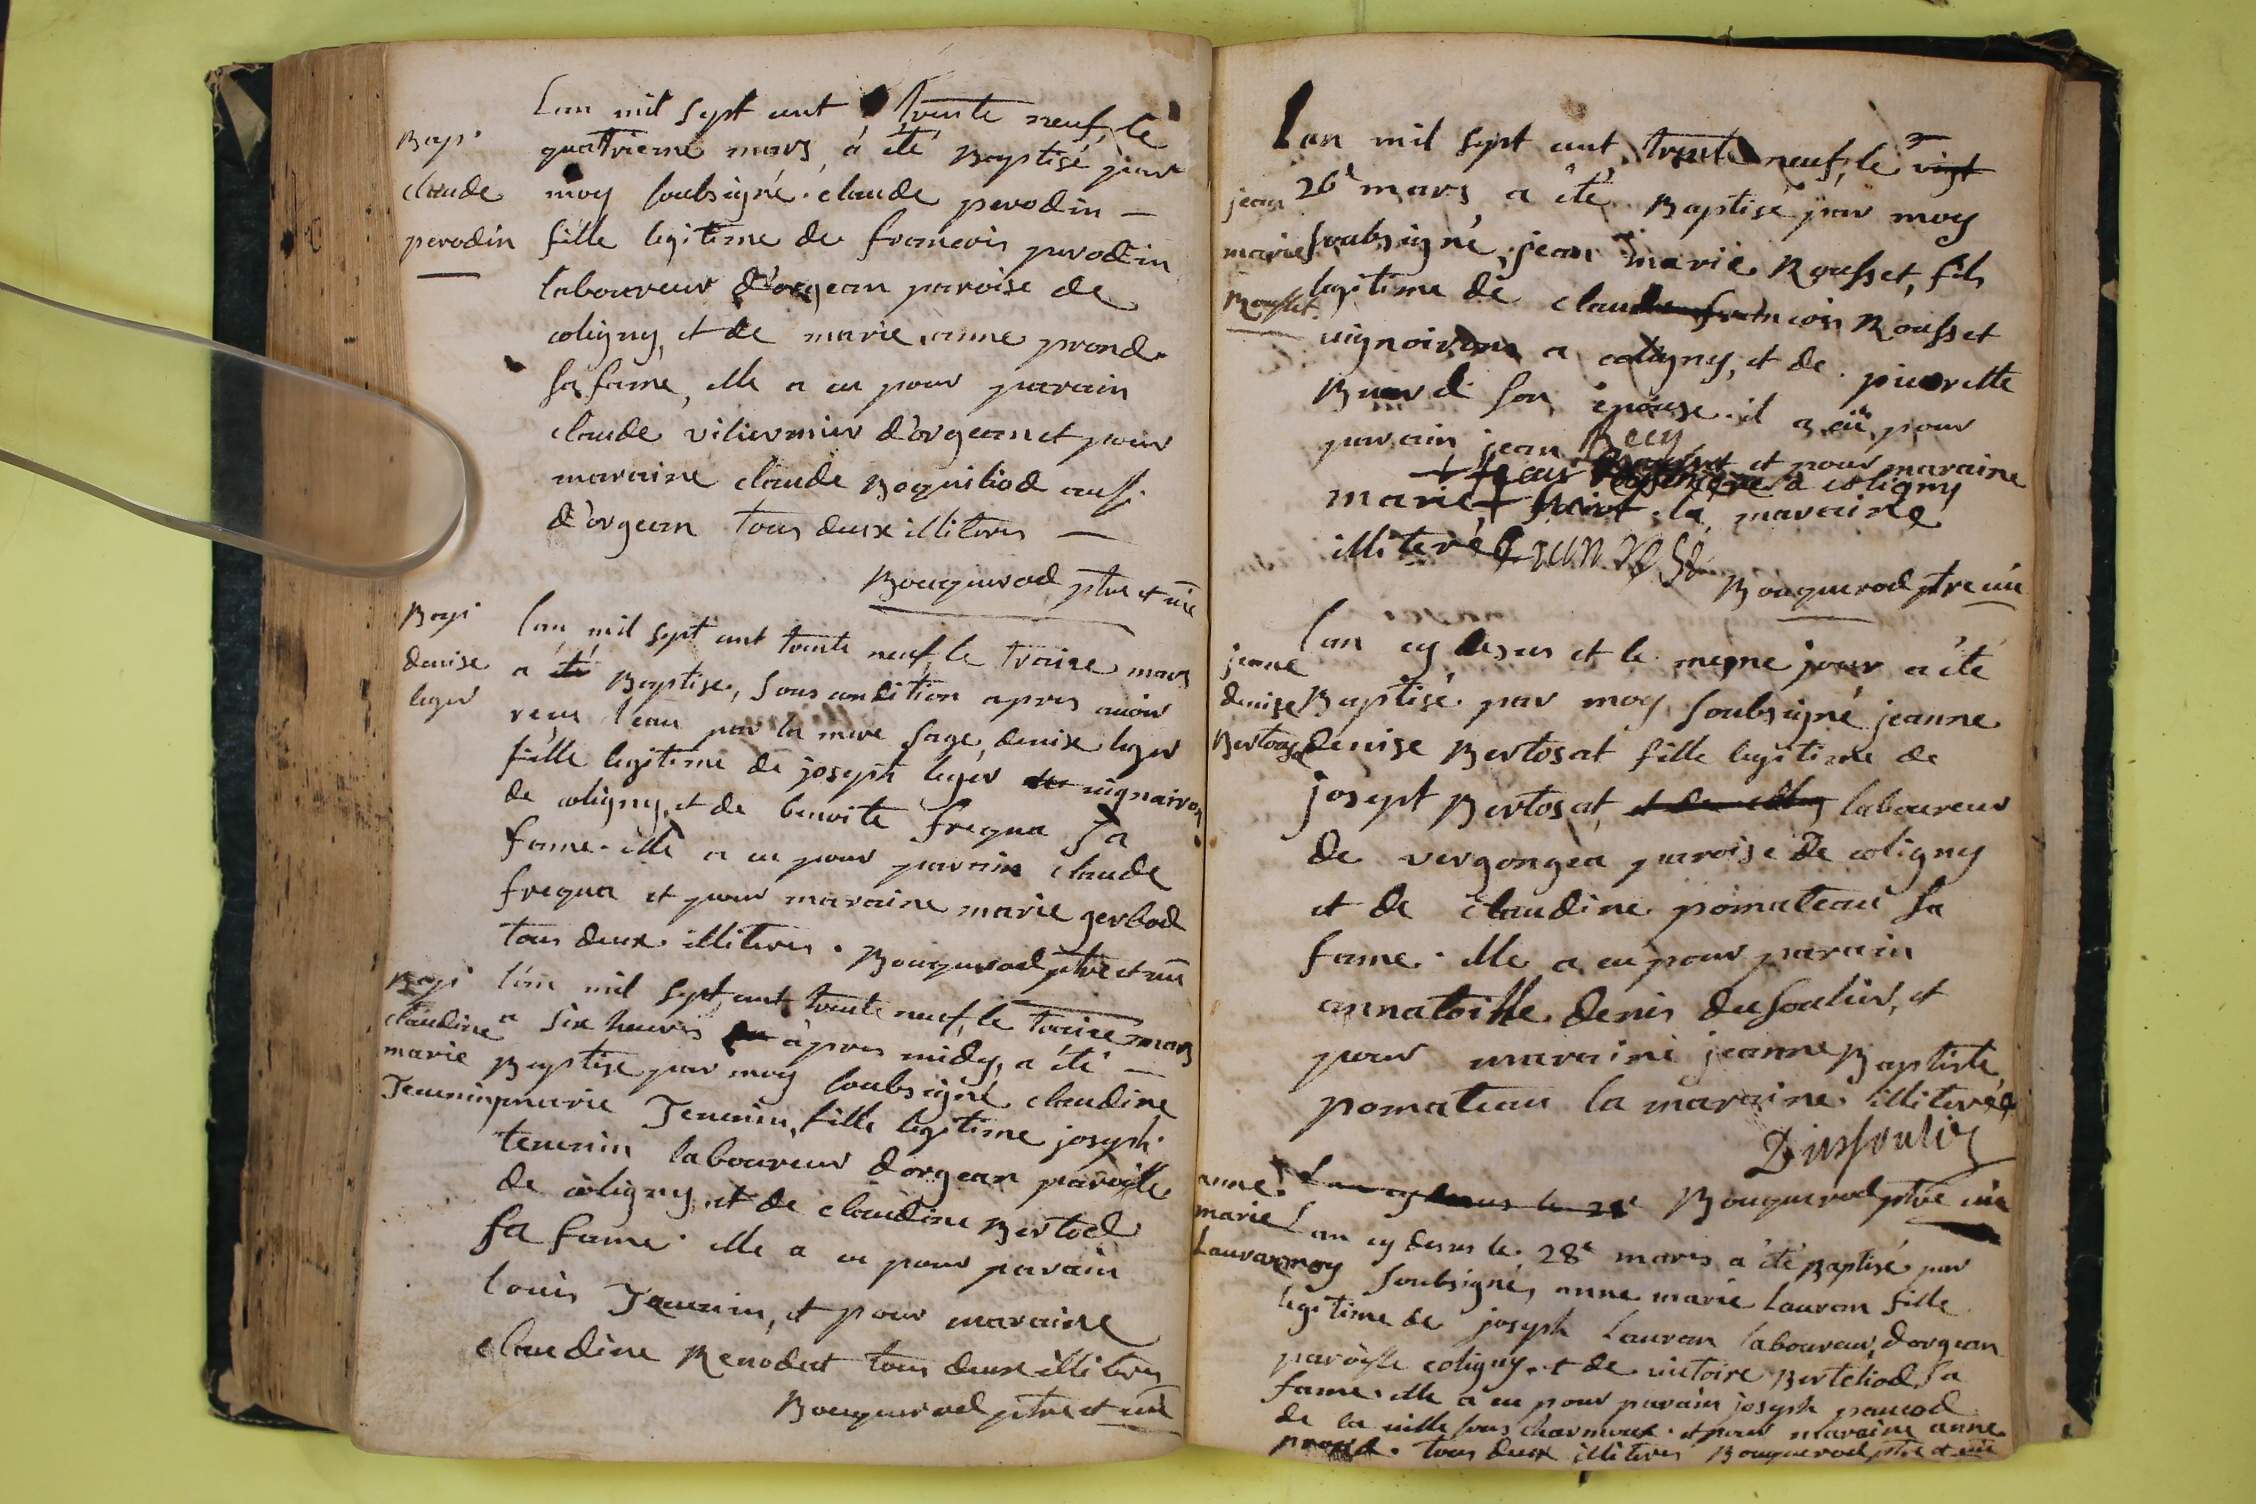 Lan mil sept cent trente neuf, le
Bap.
quatrieme mars à été Baptisé par
claude
moy soubsigné claude perodin —
perodin
fille legitime de francois perodin
laboureur d'orgean paroise de
coligny, et de marie anne prond
sa fame, elle a eu pour parain
claude viliermier d'orgean et pour
maraine claude Boquiliod aussi
d'orgean tous deux illiterés —
Bouquerod ptre et vic
Bap.
denise
leger
lan mil sept cent trente neuf, le traize mars
a été Baptise, sous condition apres auoir
receu l'eau par la mere sage, denise leger
fille legitime de joseph leger uignairon
de coligny, et de benoite frequa sa
fame. elle a eu pour parain claude
frequa et pour maraine marie gerbod
tous deux illiterés. Bouquerod ptre et vic
Bap.
claudine
marie
Tenunin
lan mil sept cent trente neuf, le traize mars
a six heures apres midy, a été —
Baptise par moy soubsigné claudine
marie Tenunin, fille legitime joseph
tenunin laboureur d'orgean paroisse
de coligny et de claudine Bertod
sa fame. elle a eu pour parain
louis Tenunin, et pour maraine
claudine Renodat tous deux illiterés
Bouquerod ptre et vic
Lan mil sept cent trente neuf, le vigt
jean
marie
Rousset
26e mars a été Baptisé par moy
soubsigné, jean marie Rousset, fils
legitime de claude francois Rousset
uignoiron a coligny, et de pierrette
Buard son epouse. il a eü pour
parain jean Recy et pour maraine
a coligny
marie + la maraine
illiteré
Bouquerod ptre vic
jeanne
denise
Bertosat
lan cy desus et le meme jour a été
Baptisé par moy soubsigné jeanne
denise Bertosat fille legitime de
josept Bertosat, laboureur
de vergongea paroise de coligny
et de claudine pomateau sa
fame. elle a eu pour parain
annatoille denis dusoulier, et
pour maraine jeanne Baptiste
pomateau la maraine illiterée
Dussoulier
Lan cy desus le 28e Bouquerod ptre vic
anne
marie
Lauran
Lan cy desus le 28e mars a été Baptisé par
moy soubsigné, anne marie Lauran fille
legitime de joseph Lauran laboureur, d'orgean
paroisse coligny. et de uictoire Berteliod, sa
fame. elle a eu pour parain joseph pauiod
de la uille sous charmoux. et pour maraine anne
prond. tous deux illiterés Bouquerod ptre et vic